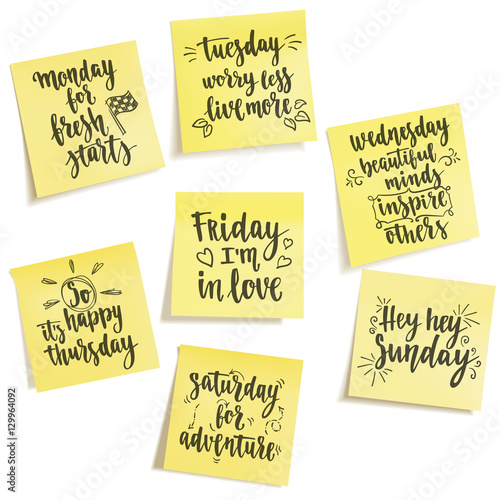 Monday
for
fresh
starts
Tuesday
worry less
live more
wednesday
beautiful
minds
inspire
others
So
it's happy
thursday
Friday
I'm
in love
Hey hey
Sunday
Saturday
for
adventure
129964092
Adobe Stock